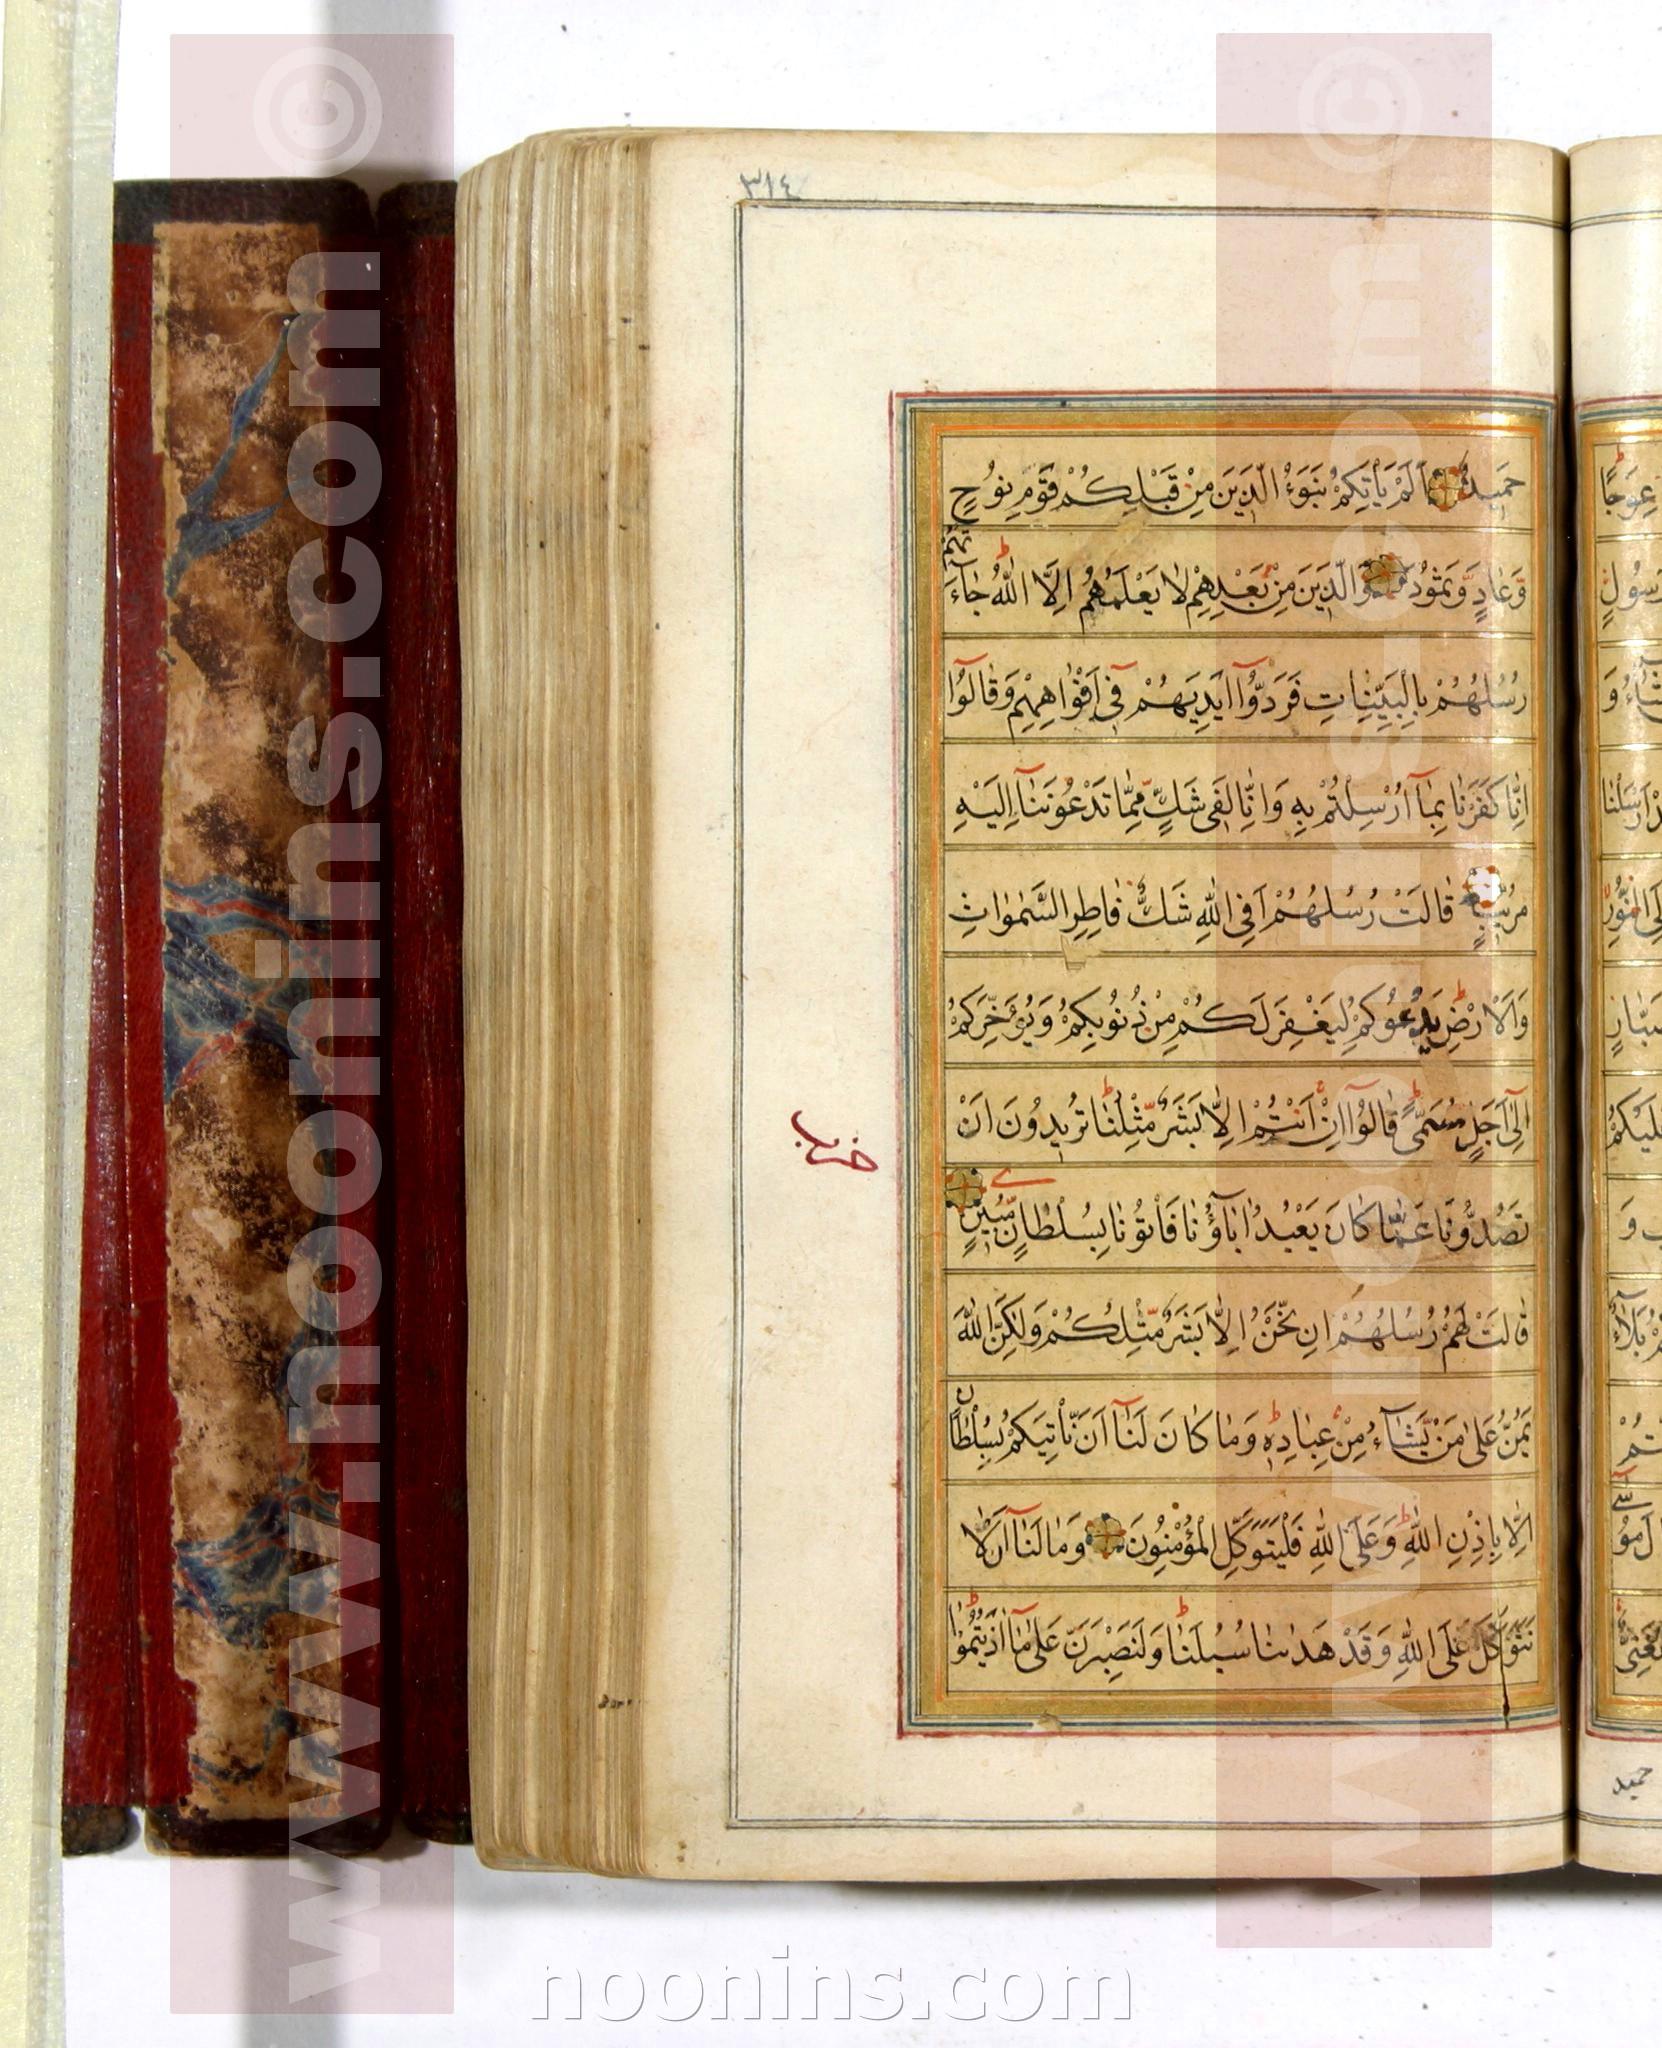 ٣١٤
حَمِيدٌ اَلَمْ يَأْتِكُمْ نَبَؤُا الَّذِينَ مِنْ قَبْلِكُمْ قَوْمِ نُوحٍ
وَعَادٍ وَثَمُودَ وَالَّذِينَ مِنْ بَعْدِهِمْ لَا يَعْلَمُهُمْ اِلَّا اللّٰهُ جَآءَتْهُمْ
رُسُلُهُمْ بِالْبَيِّنَاتِ فَرَدُّوٓا اَيْدِيَهُمْ فِىٓ اَفْوَاهِهِمْ وَقَالُوٓا
اِنَّا كَفَرْنَا بِمَآ اُرْسِلْتُمْ بِهِ وَاِنَّا لَفِى شَكٍّ مِمَّا تَدْعُونَنَآ اِلَيْهِ
مُرِيبٍ قَالَتْ رُسُلُهُمْ اَفِى اللّٰهِ شَكٌّ فَاطِرِ السَّمٰوَاتِ
وَالْاَرْضِ يَدْعُوكُمْ لِيَغْفِرَ لَكُمْ مِنْ ذُنُوبِكُمْ وَيُؤَخِّرَكُمْ
اِلٰٓى اَجَلٍ مُسَمًّى قَالُوٓا اِنْ اَنْتُمْ اِلَّا بَشَرٌ مِثْلُنَا تُرِيدُونَ اَنْ
تَصُدُّونَا عَمَّا كَانَ يَعْبُدُ اٰبَآؤُنَا فَأْتُونَا بِسُلْطَانٍ مُبِينٍ
قَالَتْ لَهُمْ رُسُلُهُمْ اِنْ نَحْنُ اِلَّا بَشَرٌ مِثْلُكُمْ وَلٰكِنَّ اللّٰهَ
يَمُنُّ عَلٰى مَنْ يَشَآءُ مِنْ عِبَادِهِ وَمَا كَانَ لَنَآ اَنْ نَأْتِيَكُمْ بِسُلْطَانٍ
اِلَّا بِاِذْنِ اللّٰهِ وَعَلَى اللّٰهِ فَلْيَتَوَكَّلِ الْمُؤْمِنُونَ وَمَا لَنَآ اَلَّا
نَتَوَكَّلَ عَلَى اللّٰهِ وَقَدْ هَدٰينَا سُبُلَنَا وَلَنَصْبِرَنَّ عَلٰى مَآ اٰذَيْتُمُونَا
حزب
حميد
www.noonins.com ©
www.noonins.com ©
noonins.com